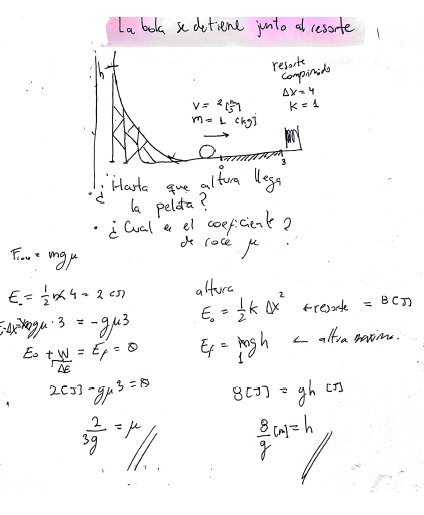 La bola se detiene junto al resorte
h
resorte
comprimido
Δx = 4
k = 1
v = 2 [m/s]
m = 1 [kg]
0
3
• ¿Hasta que altura llega
la pelota?
• ¿Cual es el coeficiente
de roce μ ?
= mgμ
E₀ = ½ m 4 = 2 [J]
mgμ · 3 = -gμ3
E₀ + W = E_f = 0
ΔE
2[J] - gμ3 = 0
2/3g = μ
altura
E₀ = ½ k Δx² ← resorte = 8[J]
E_f = mgh ← altura maxima.
1
8[J] = gh [J]
8/g [m] = h